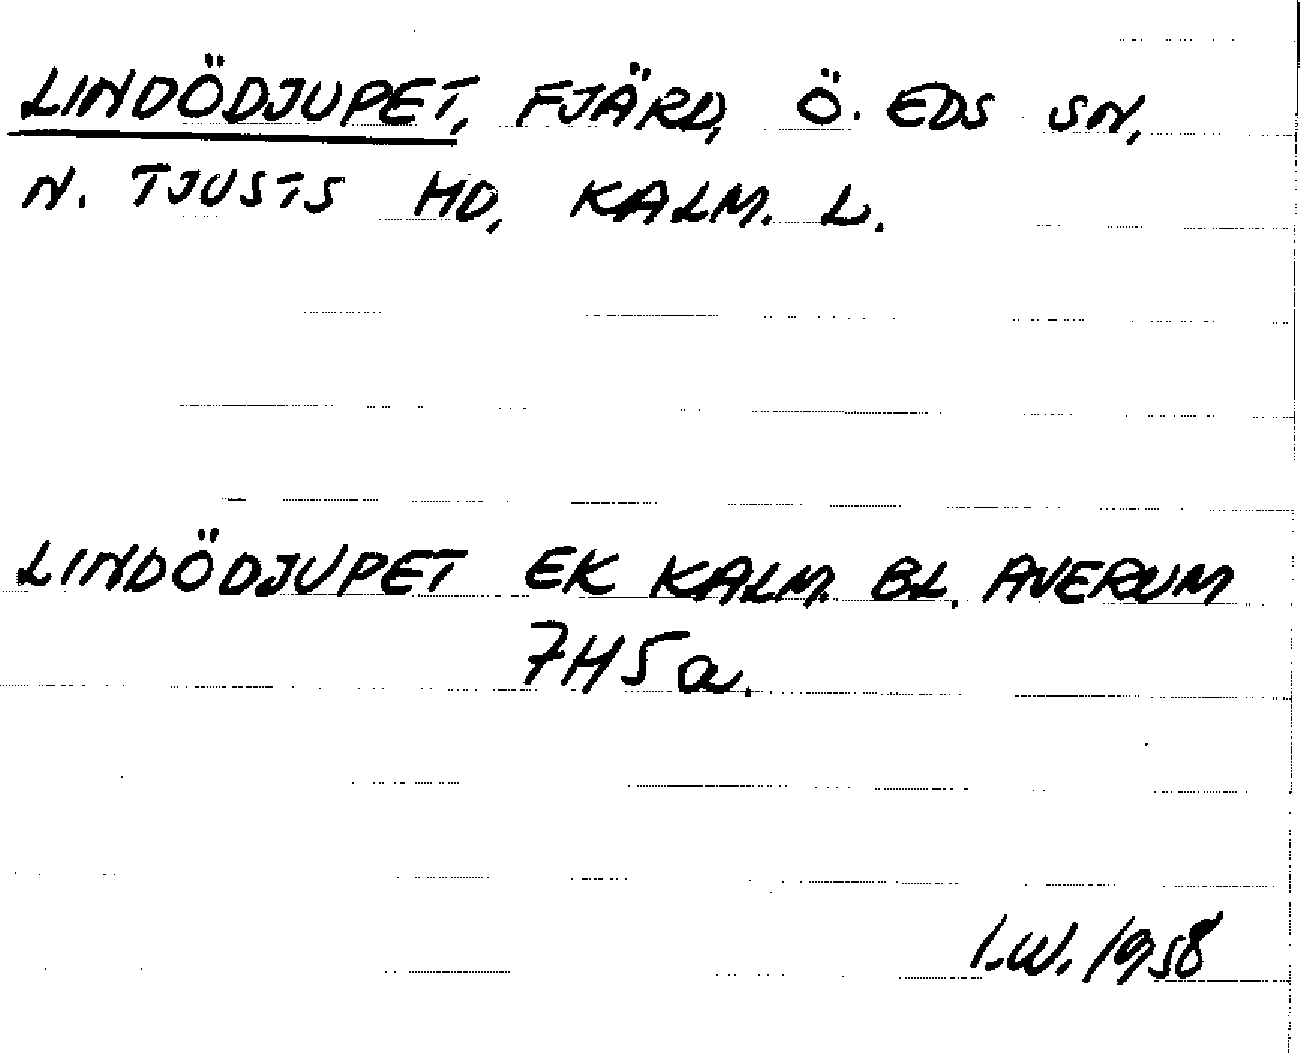 LINDÖDJUPET, FJÄRD, Ö. EDS SN,
N. TJUSTS HD, KALM. L.
LINDÖDJUPET EK KALM. BL. AVERUM
7H5a.
I.W. 1958